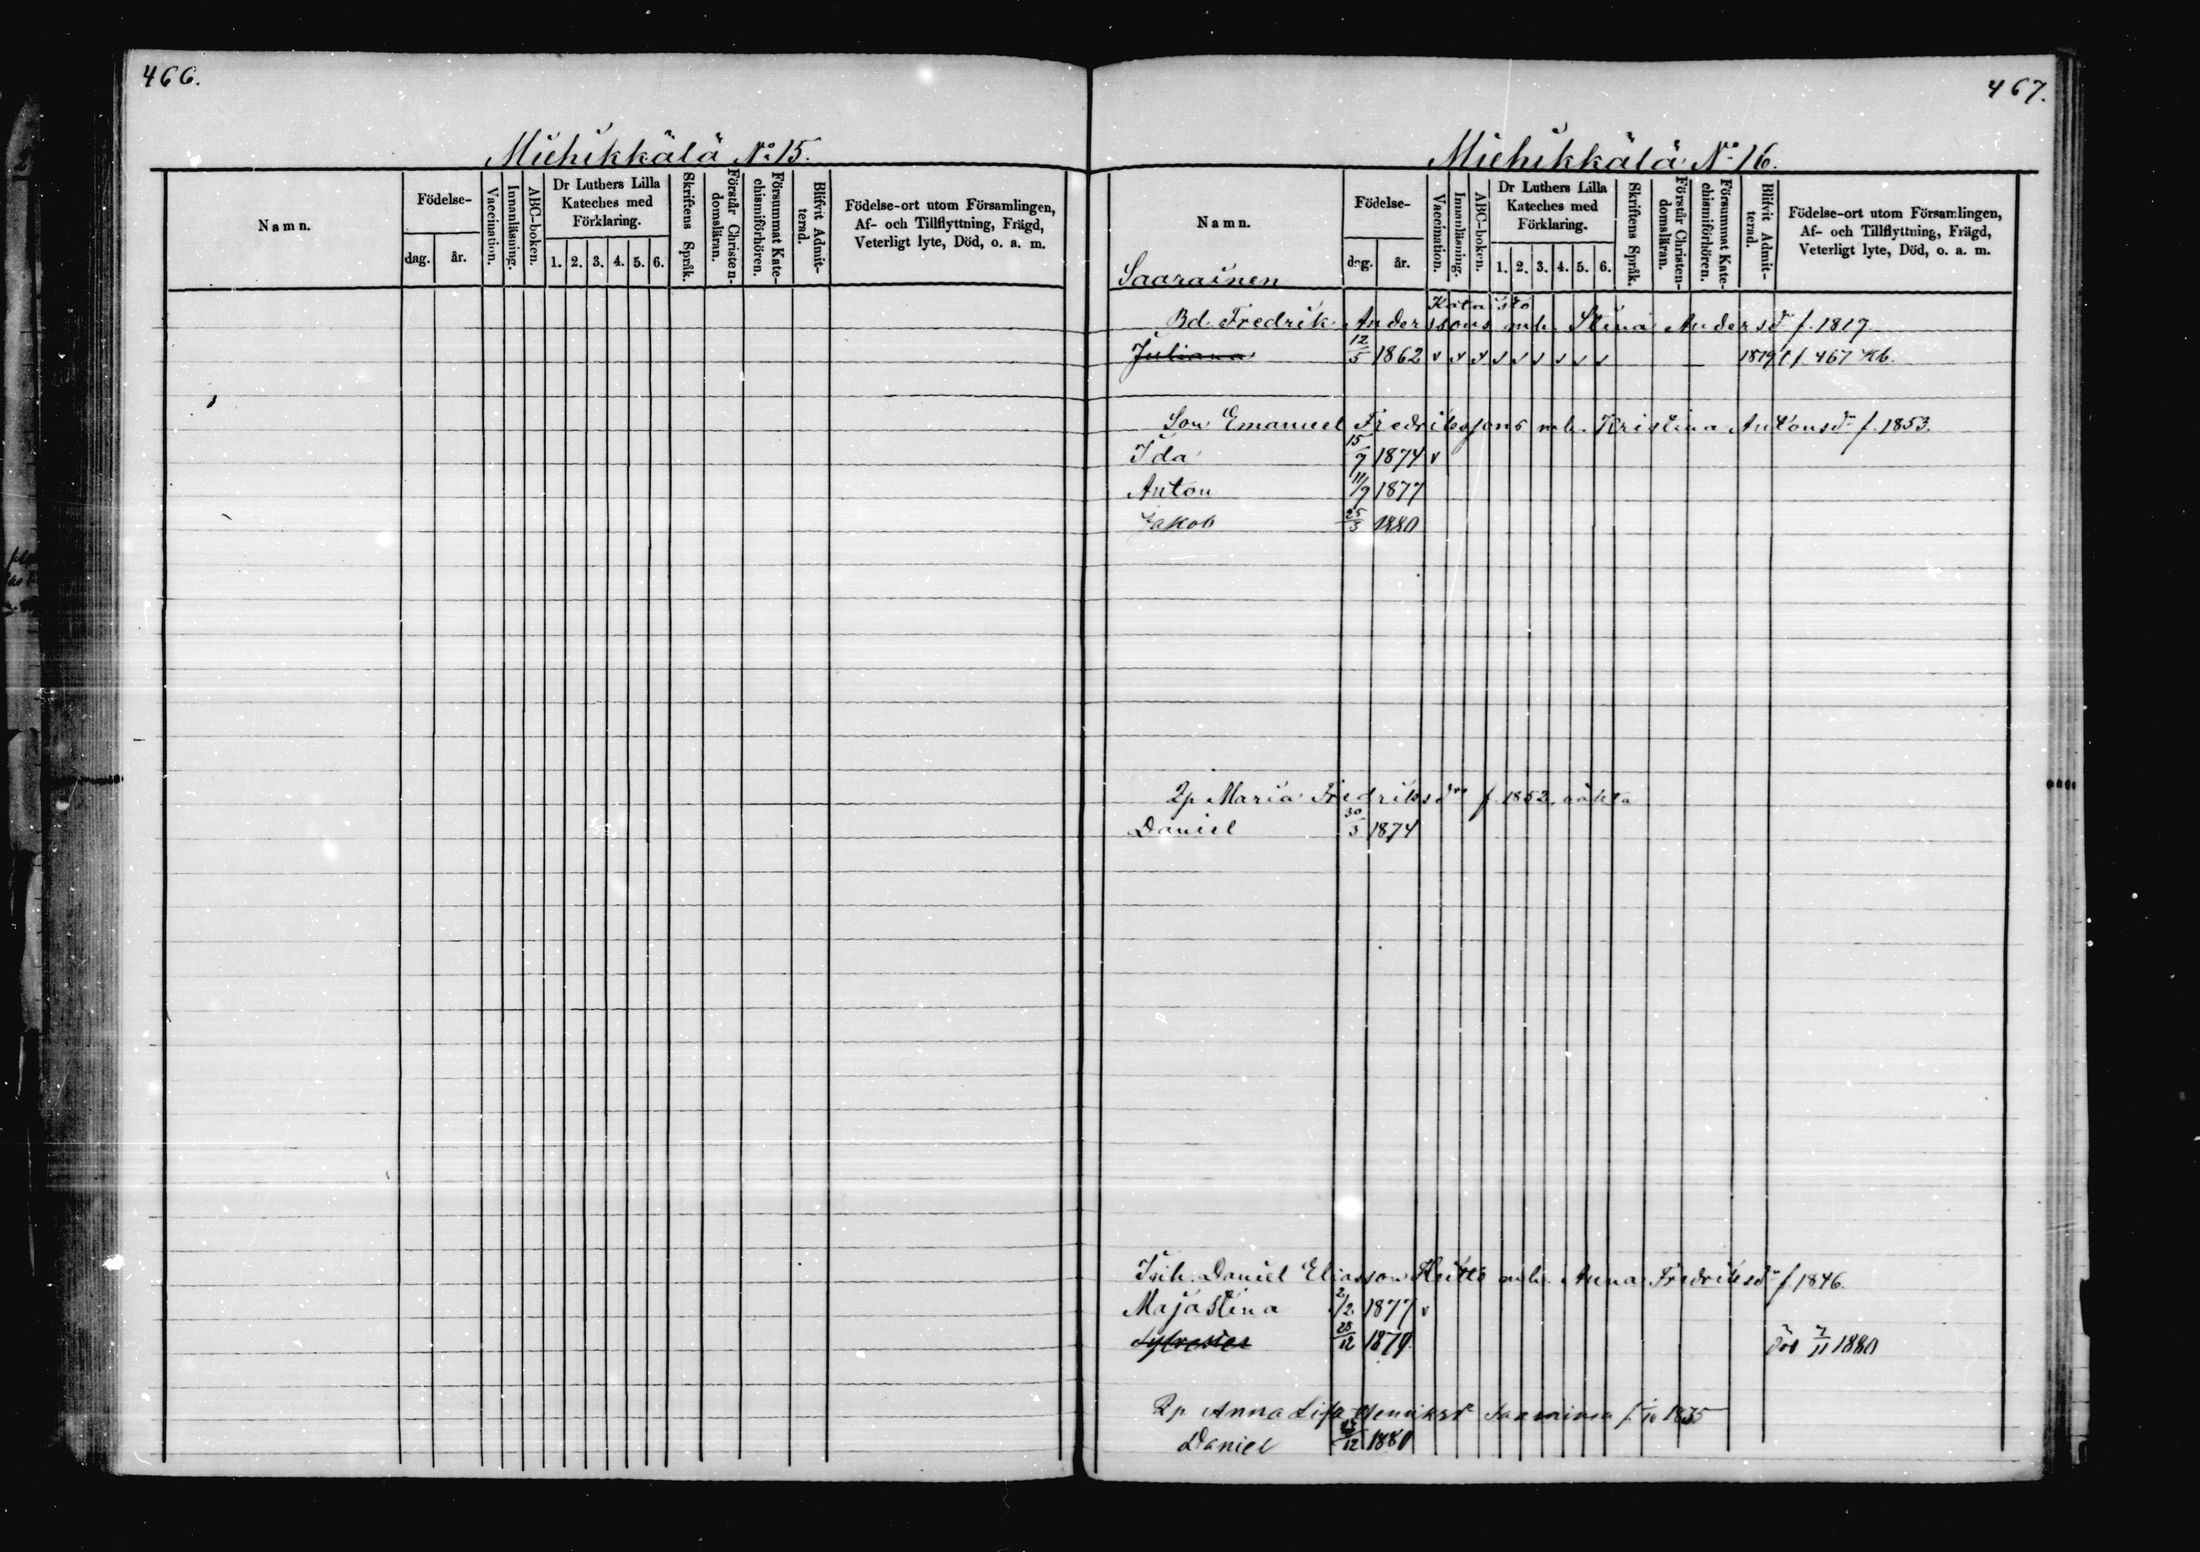 466.
Miehikkälä No 15.
Namn.
Födelse-
dag. år.
Vaccination.
Innanläsning.
ABC-boken.
Dr Luthers Lilla
Kateches med
Förklaring.
1. 2. 3. 4. 5. 6.
Skriftens Språk.
Förstår Christen-
domsläran.
Försummat Kate-
chismiförhören.
Blifvit Admit-
terad.
Födelse-ort utom Församlingen,
Af- och Tillflyttning, Frägd,
Veterligt lyte, Död, o. a. m.
467.
Miehikkälä No 16.
Namn.
Födelse-
dag. år.
Vaccination.
Innanläsning.
ABC-boken.
Dr Luthers Lilla
Kateches med
Förklaring.
1. 2. 3. 4. 5. 6.
Skriftens Språk.
Förstår Christen-
domsläran.
Försummat Kate-
chismiförhören.
Blifvit Admit-
terad.
Födelse-ort utom Församlingen,
Af- och Tillflyttning, Frägd,
Veterligt lyte, Död, o. a. m.
Saarainen
Bd. Fredrik Anderssons enk. Stina Andersdr f. 1819
Juliana 12/5 1862 v v v v v v v v v — 1879 f. 467 Kb.
Son Emanuel Fredrikssons m h. Kristina Antonsdr f. 1853.
Ida 15/7 1874 v
Anton 11/9 1877
Jakob 25/3 1880
Qp Maria Fredriksdrs f. 1852, oäkta
Daniel 30/3 1874
Inh. Daniel Eliasson m h. Anna Fredriksdr f. 1846.
Majastina 2/2 1877 v
Sylvester 28/12 1879 död 7/11 1880
Qp Anna Lisa Henriksdr f. 1835
Daniel /12 1880